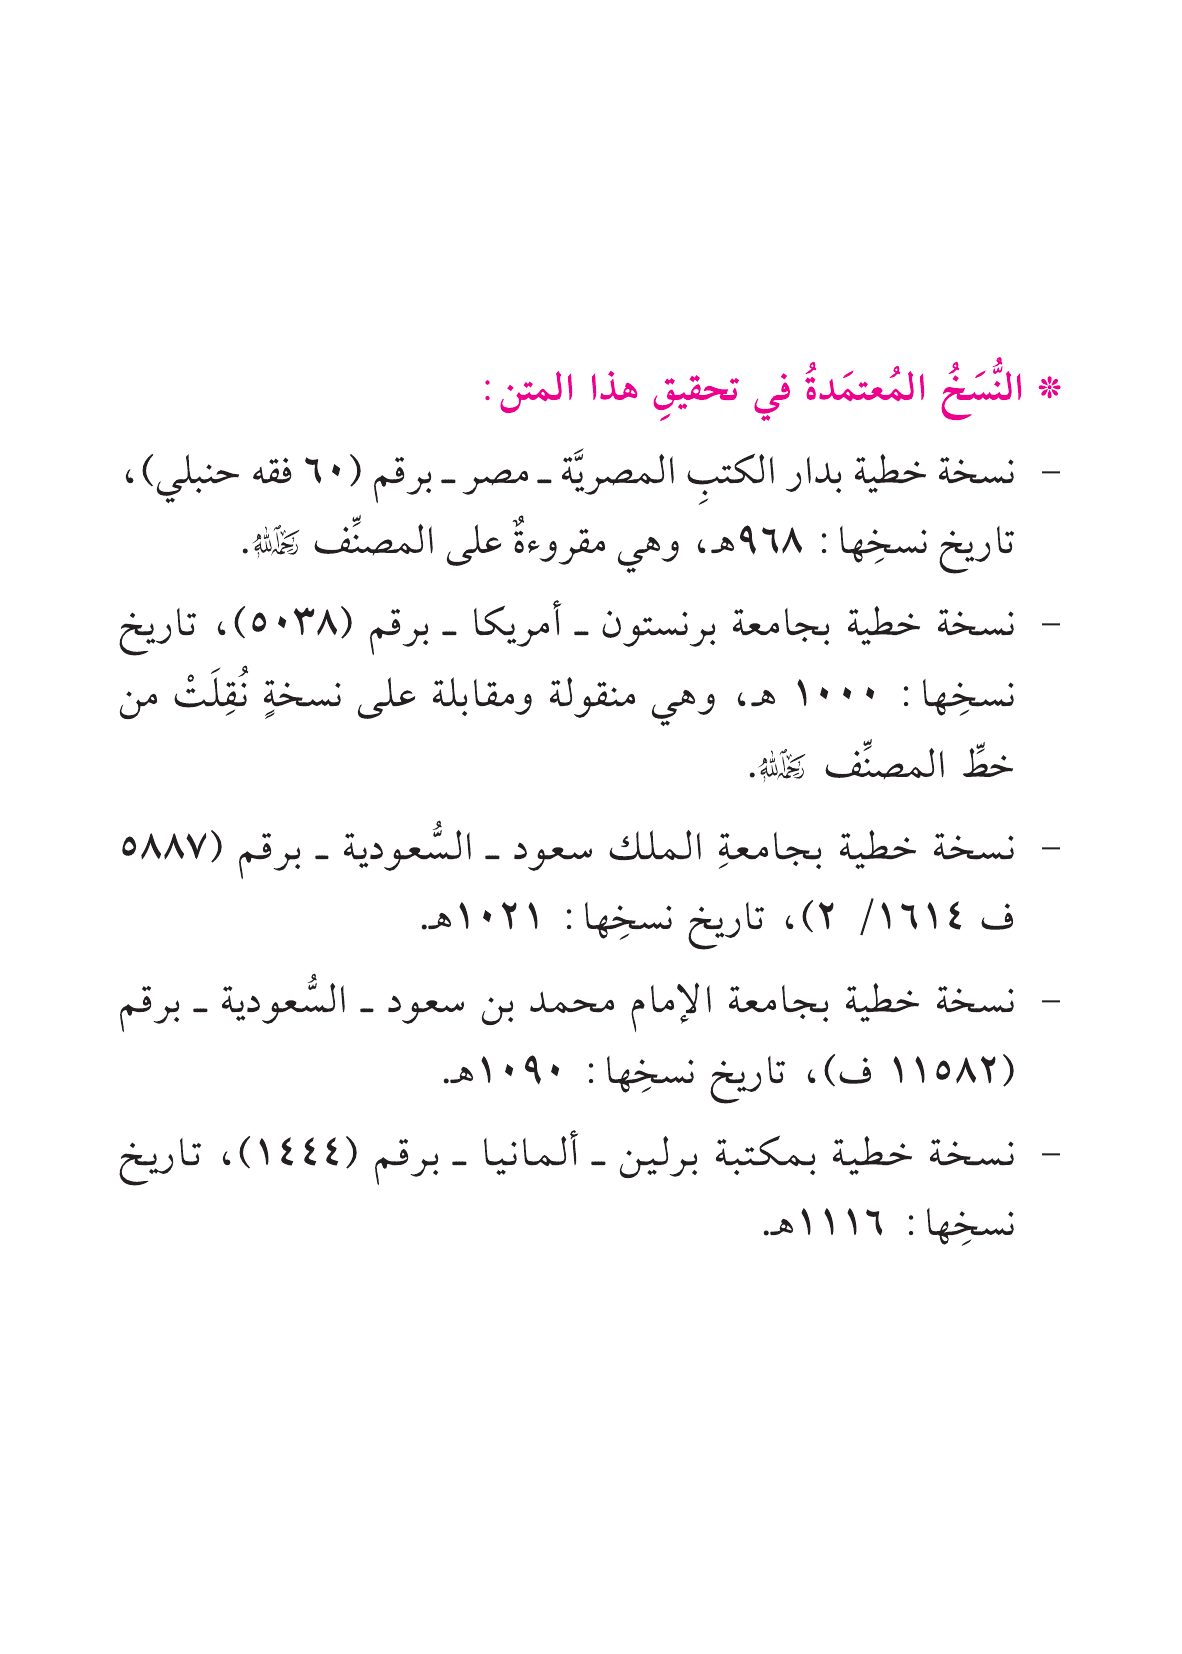 ❊ النُّسَخُ المُعتمَدةُ في تحقيقِ هذا المتن:
– نسخة خطية بدار الكتبِ المصريَّة ـ مصر ـ برقم (٦٠ فقه حنبلي)،
تاريخ نسخِها: ٩٦٨هـ، وهي مقروءةٌ على المصنِّف رَحِمَهُ ٱللَّهُ.
– نسخة خطية بجامعة برنستون ـ أمريكا ـ برقم (٥٠٣٨)، تاريخ
نسخِها: ١٠٠٠ هـ، وهي منقولة ومقابلة على نسخةٍ نُقِلَتْ من
خطِّ المصنِّف رَحِمَهُ ٱللَّهُ.
– نسخة خطية بجامعةِ الملك سعود ـ السُّعودية ـ برقم (٥٨٨٧
ف ١٦١٤/ ٢)، تاريخ نسخِها: ١٠٢١هـ.
– نسخة خطية بجامعة الإمام محمد بن سعود ـ السُّعودية ـ برقم
(١١٥٨٢ ف)، تاريخ نسخِها: ١٠٩٠هـ.
– نسخة خطية بمكتبة برلين ـ ألمانيا ـ برقم (١٤٤٤)، تاريخ
نسخِها: ١١١٦هـ.